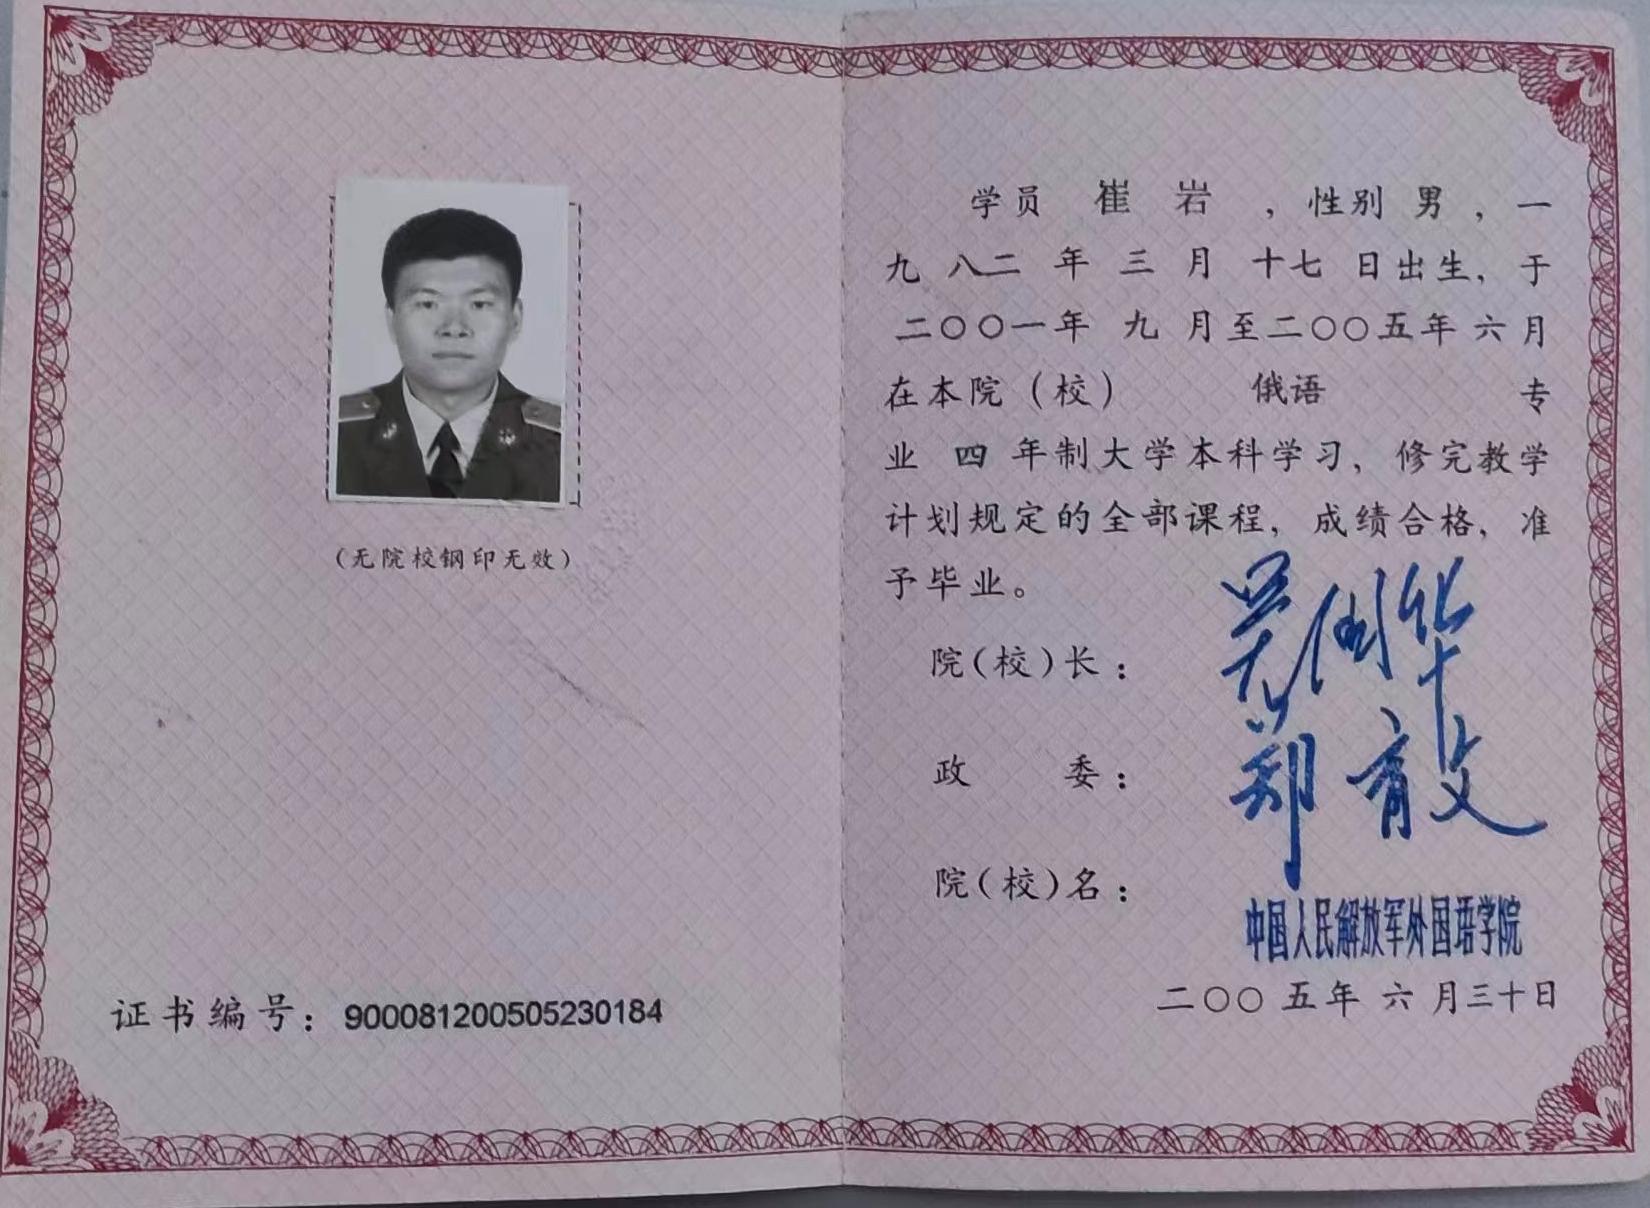 （无院校钢印无效）
证书编号：900081200505230184
学员 崔 岩 ，性别 男 ，一
九 八二 年 三 月 十七 日出生，于
二〇〇一年 九 月至二〇〇五年 六 月
在本院（校） 俄语 专
业 四 年制大学本科学习，修完教学
计划规定的全部课程，成绩合格，准
予毕业。
院（校）长： 吴国华
政 委： 郑育文
院（校）名：
中国人民解放军外国语学院
二〇〇五年 六 月三十日